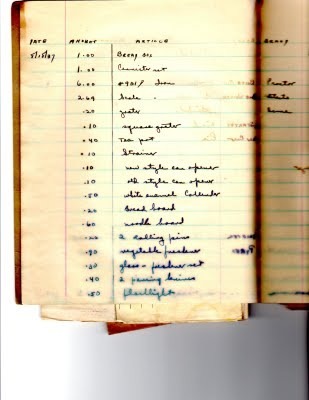 DATE AMOUNT ARTICLE BRAND
1.00 Bread Box
1.00 Cannister set
6.00 Iron Proctor
2.69 Scale
.20 grater
.10 square grater
.40 Tea pot
.10 Strainer
.10 new style can opener
.10 old style can opener
.50 white enamel Collender
.20 Bread board
.60 noodle board
2 rolling pins
vegetable
glass set
.40 2 paring knives
.50 flashlight